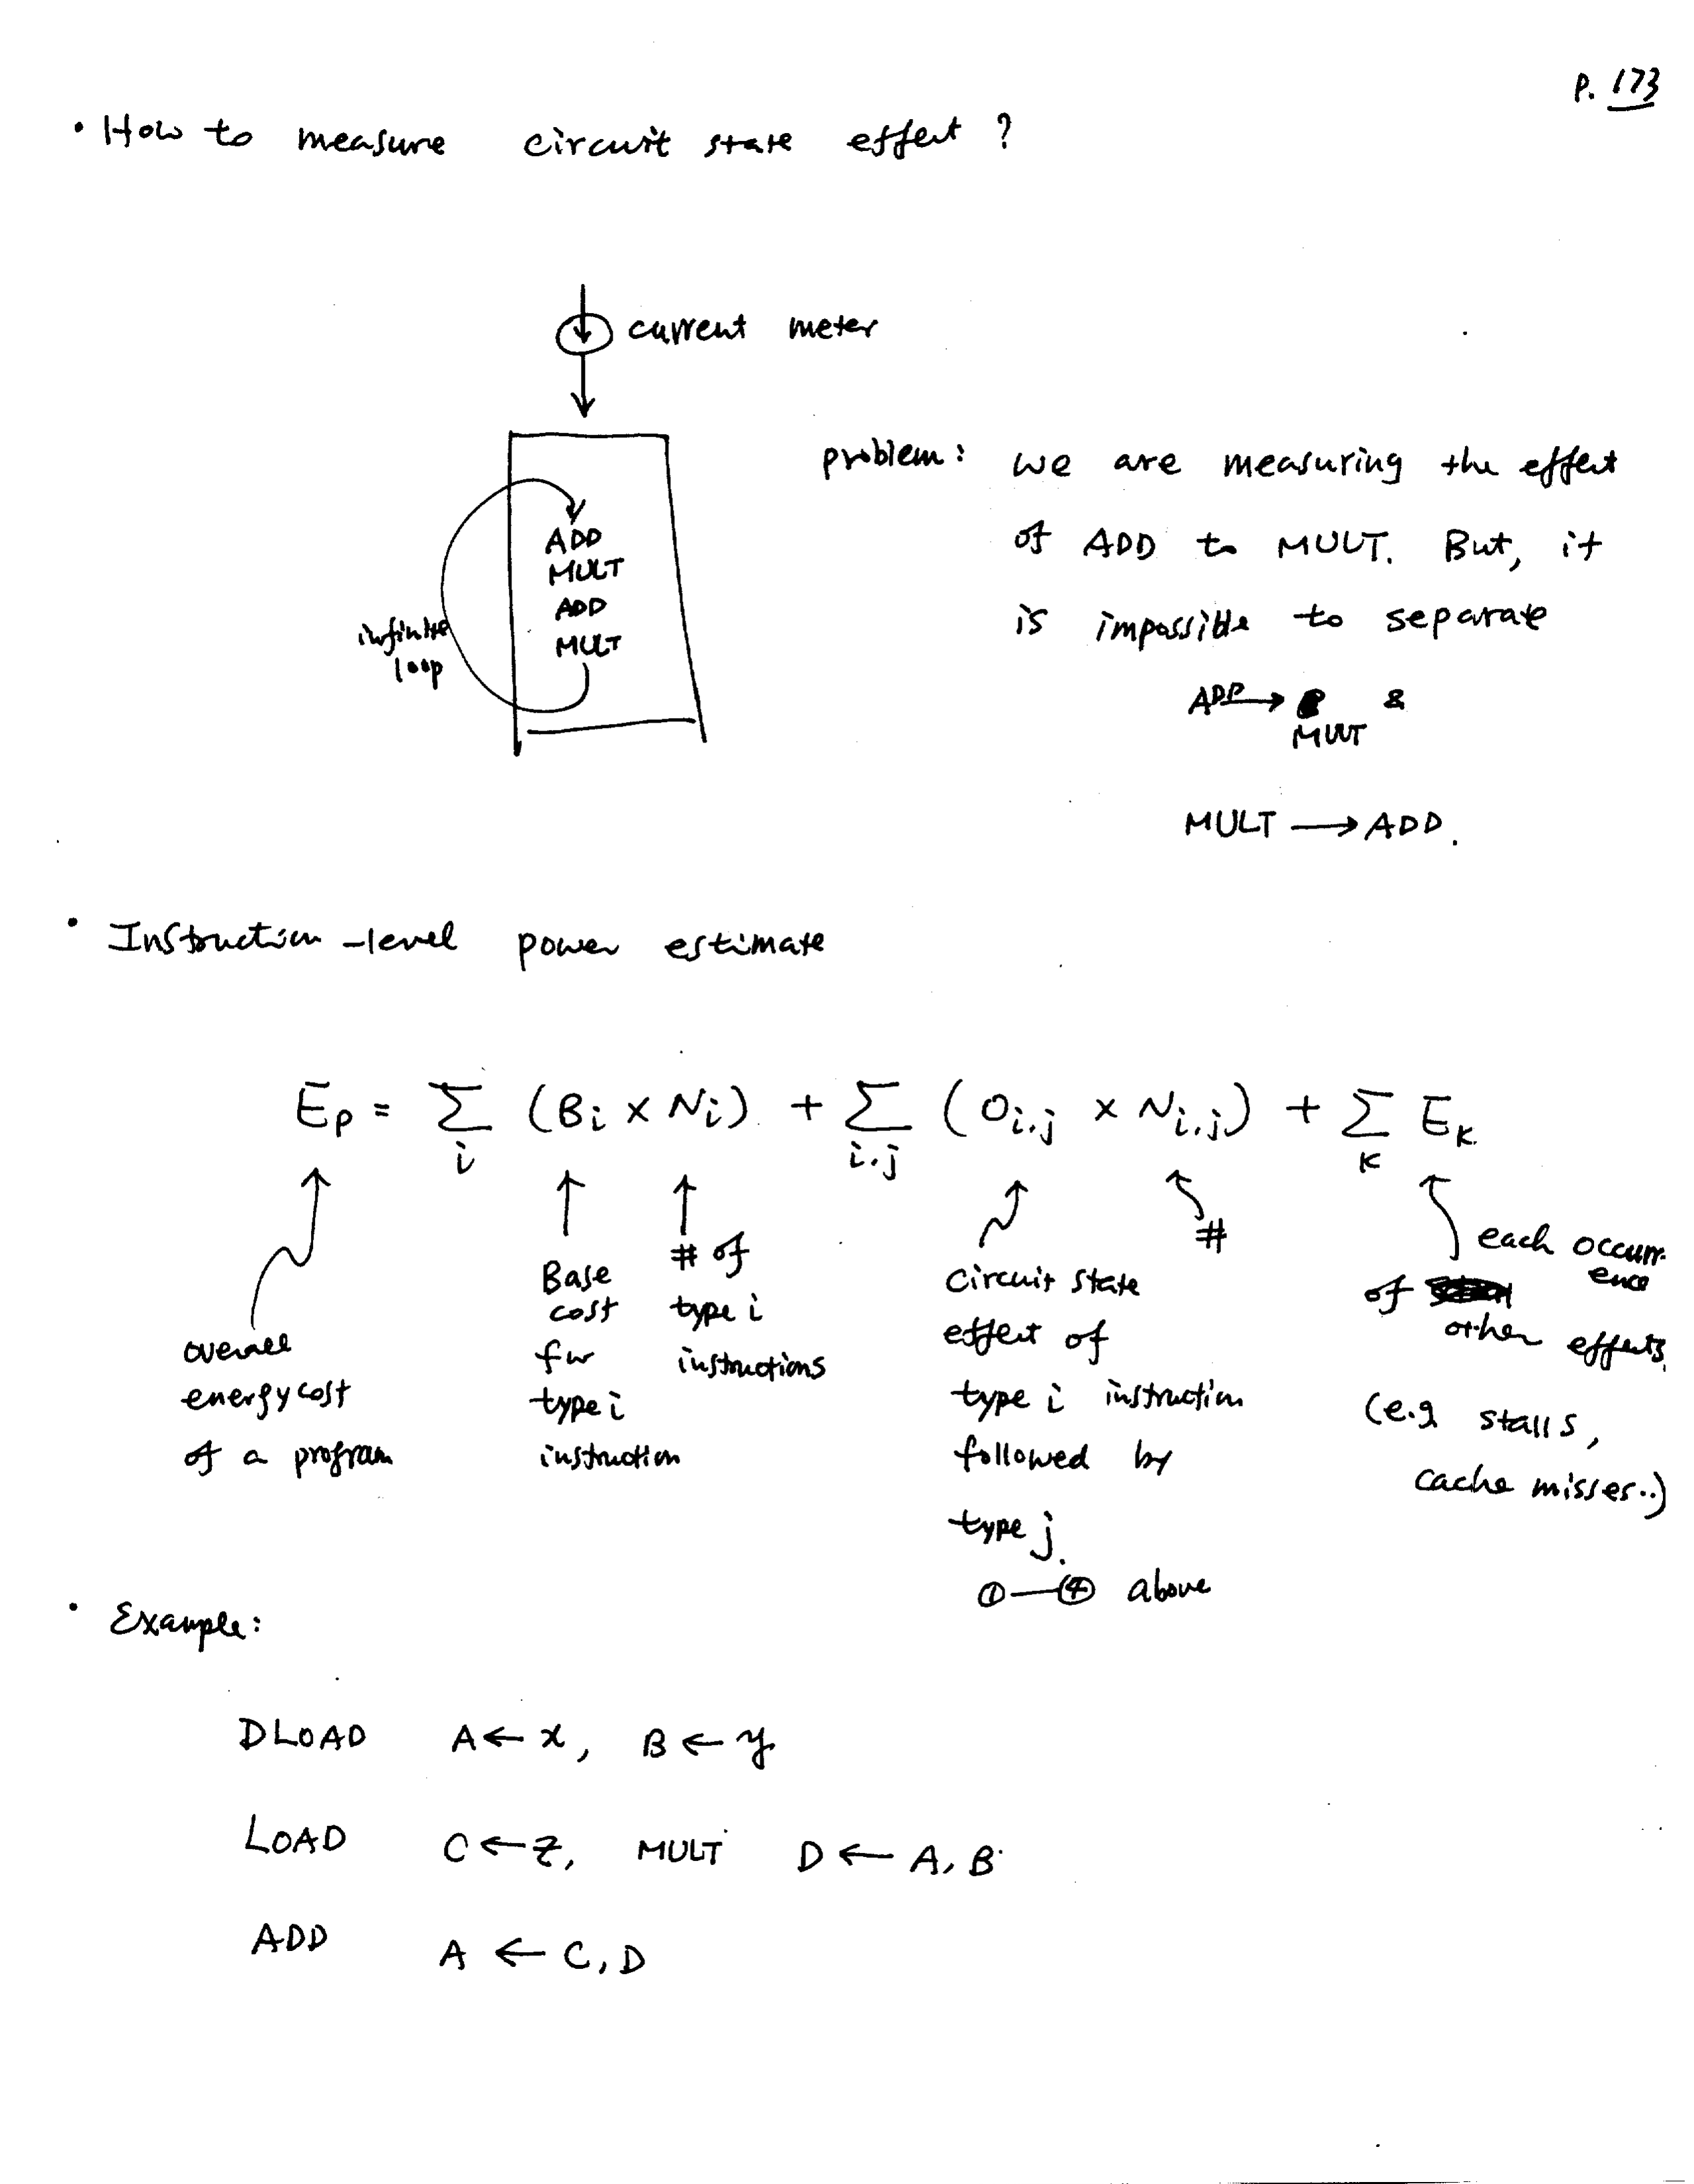 P. 173
• How to measure circuit state effect ?
current meter
ADD
MULT
ADD
MULT
infinite
loop
problem: we are measuring the effect
of ADD to MULT. But, it
is impossible to separate
ADD → MULT &
MULT → ADD.
• Instruction-level power estimate
E_P = Σ_i (B_i × N_i) + Σ_{i,j} (O_{i,j} × N_{i,j}) + Σ_K E_K
overall
energy cost
of a program
Base
cost
for
type i
instruction
# of
type i
instructions
circuit state
effect of
type i instruction
followed by
type j.
① — ④ above
#
each occurrence
of other effects.
(e.g stalls,
cache misses..)
• Example:
DLOAD A ← x, B ← y
LOAD C ← z, MULT D ← A, B
ADD A ← C, D